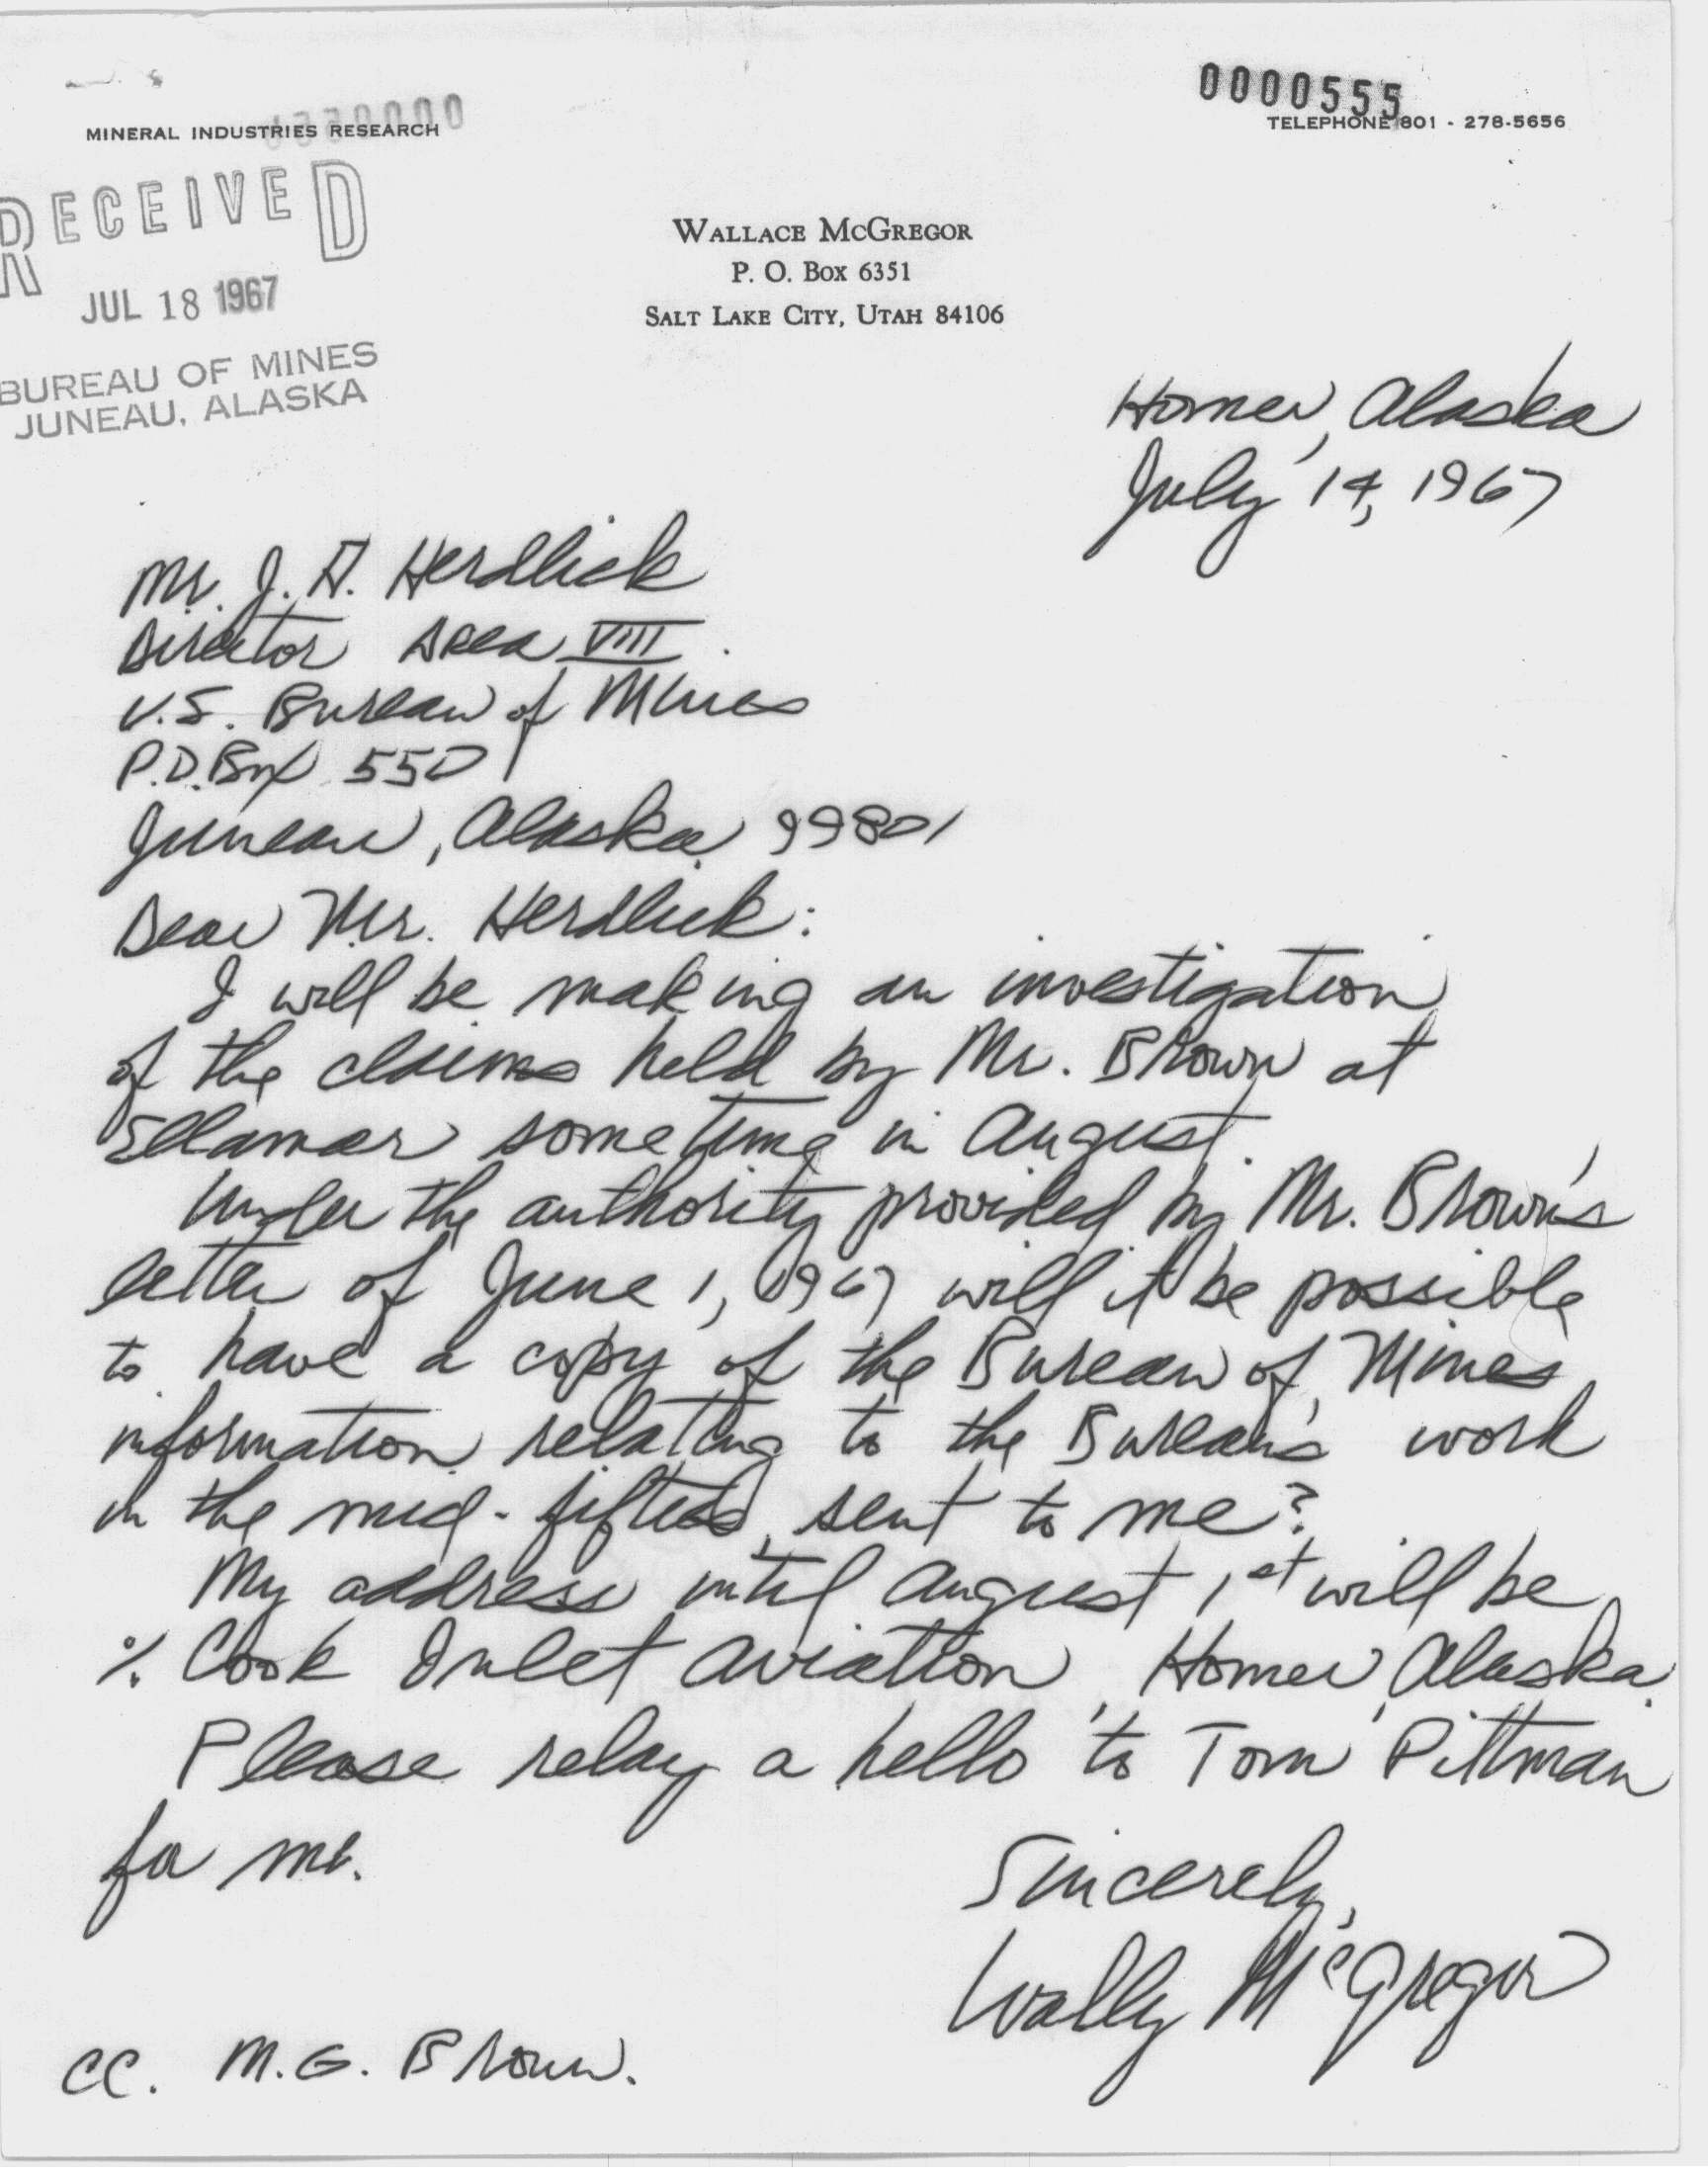 0000555
MINERAL INDUSTRIES RESEARCH
TELEPHONE 801 - 278-5656
RECEIVED
JUL 18 1967
BUREAU OF MINES
JUNEAU, ALASKA
WALLACE MCGREGOR
P. O. BOX 6351
SALT LAKE CITY, UTAH 84106
Homer, Alaska
July 14, 1967
Mr. J. A. Herdlick
Director Area VIII
U.S. Bureau of Mines
P.O. Box 550
Juneau, Alaska 99801
Dear Mr. Herdlick:
I will be making an investigation
of the claims held by Mr. Brown at
Ellamar sometime in August.
Under the authority provided by Mr. Brown's
letter of June 1, 1967 will it be possible
to have a copy of the Bureau of Mines
information relating to the Bureau's work
in the mid-fifties, sent to me?
My address until August 1st will be
% Cook Inlet Aviation, Homer, Alaska.
Please relay a hello to Tom Pittman
for me.
Sincerely,
Wally McGregor
CC. M.G. Brown.